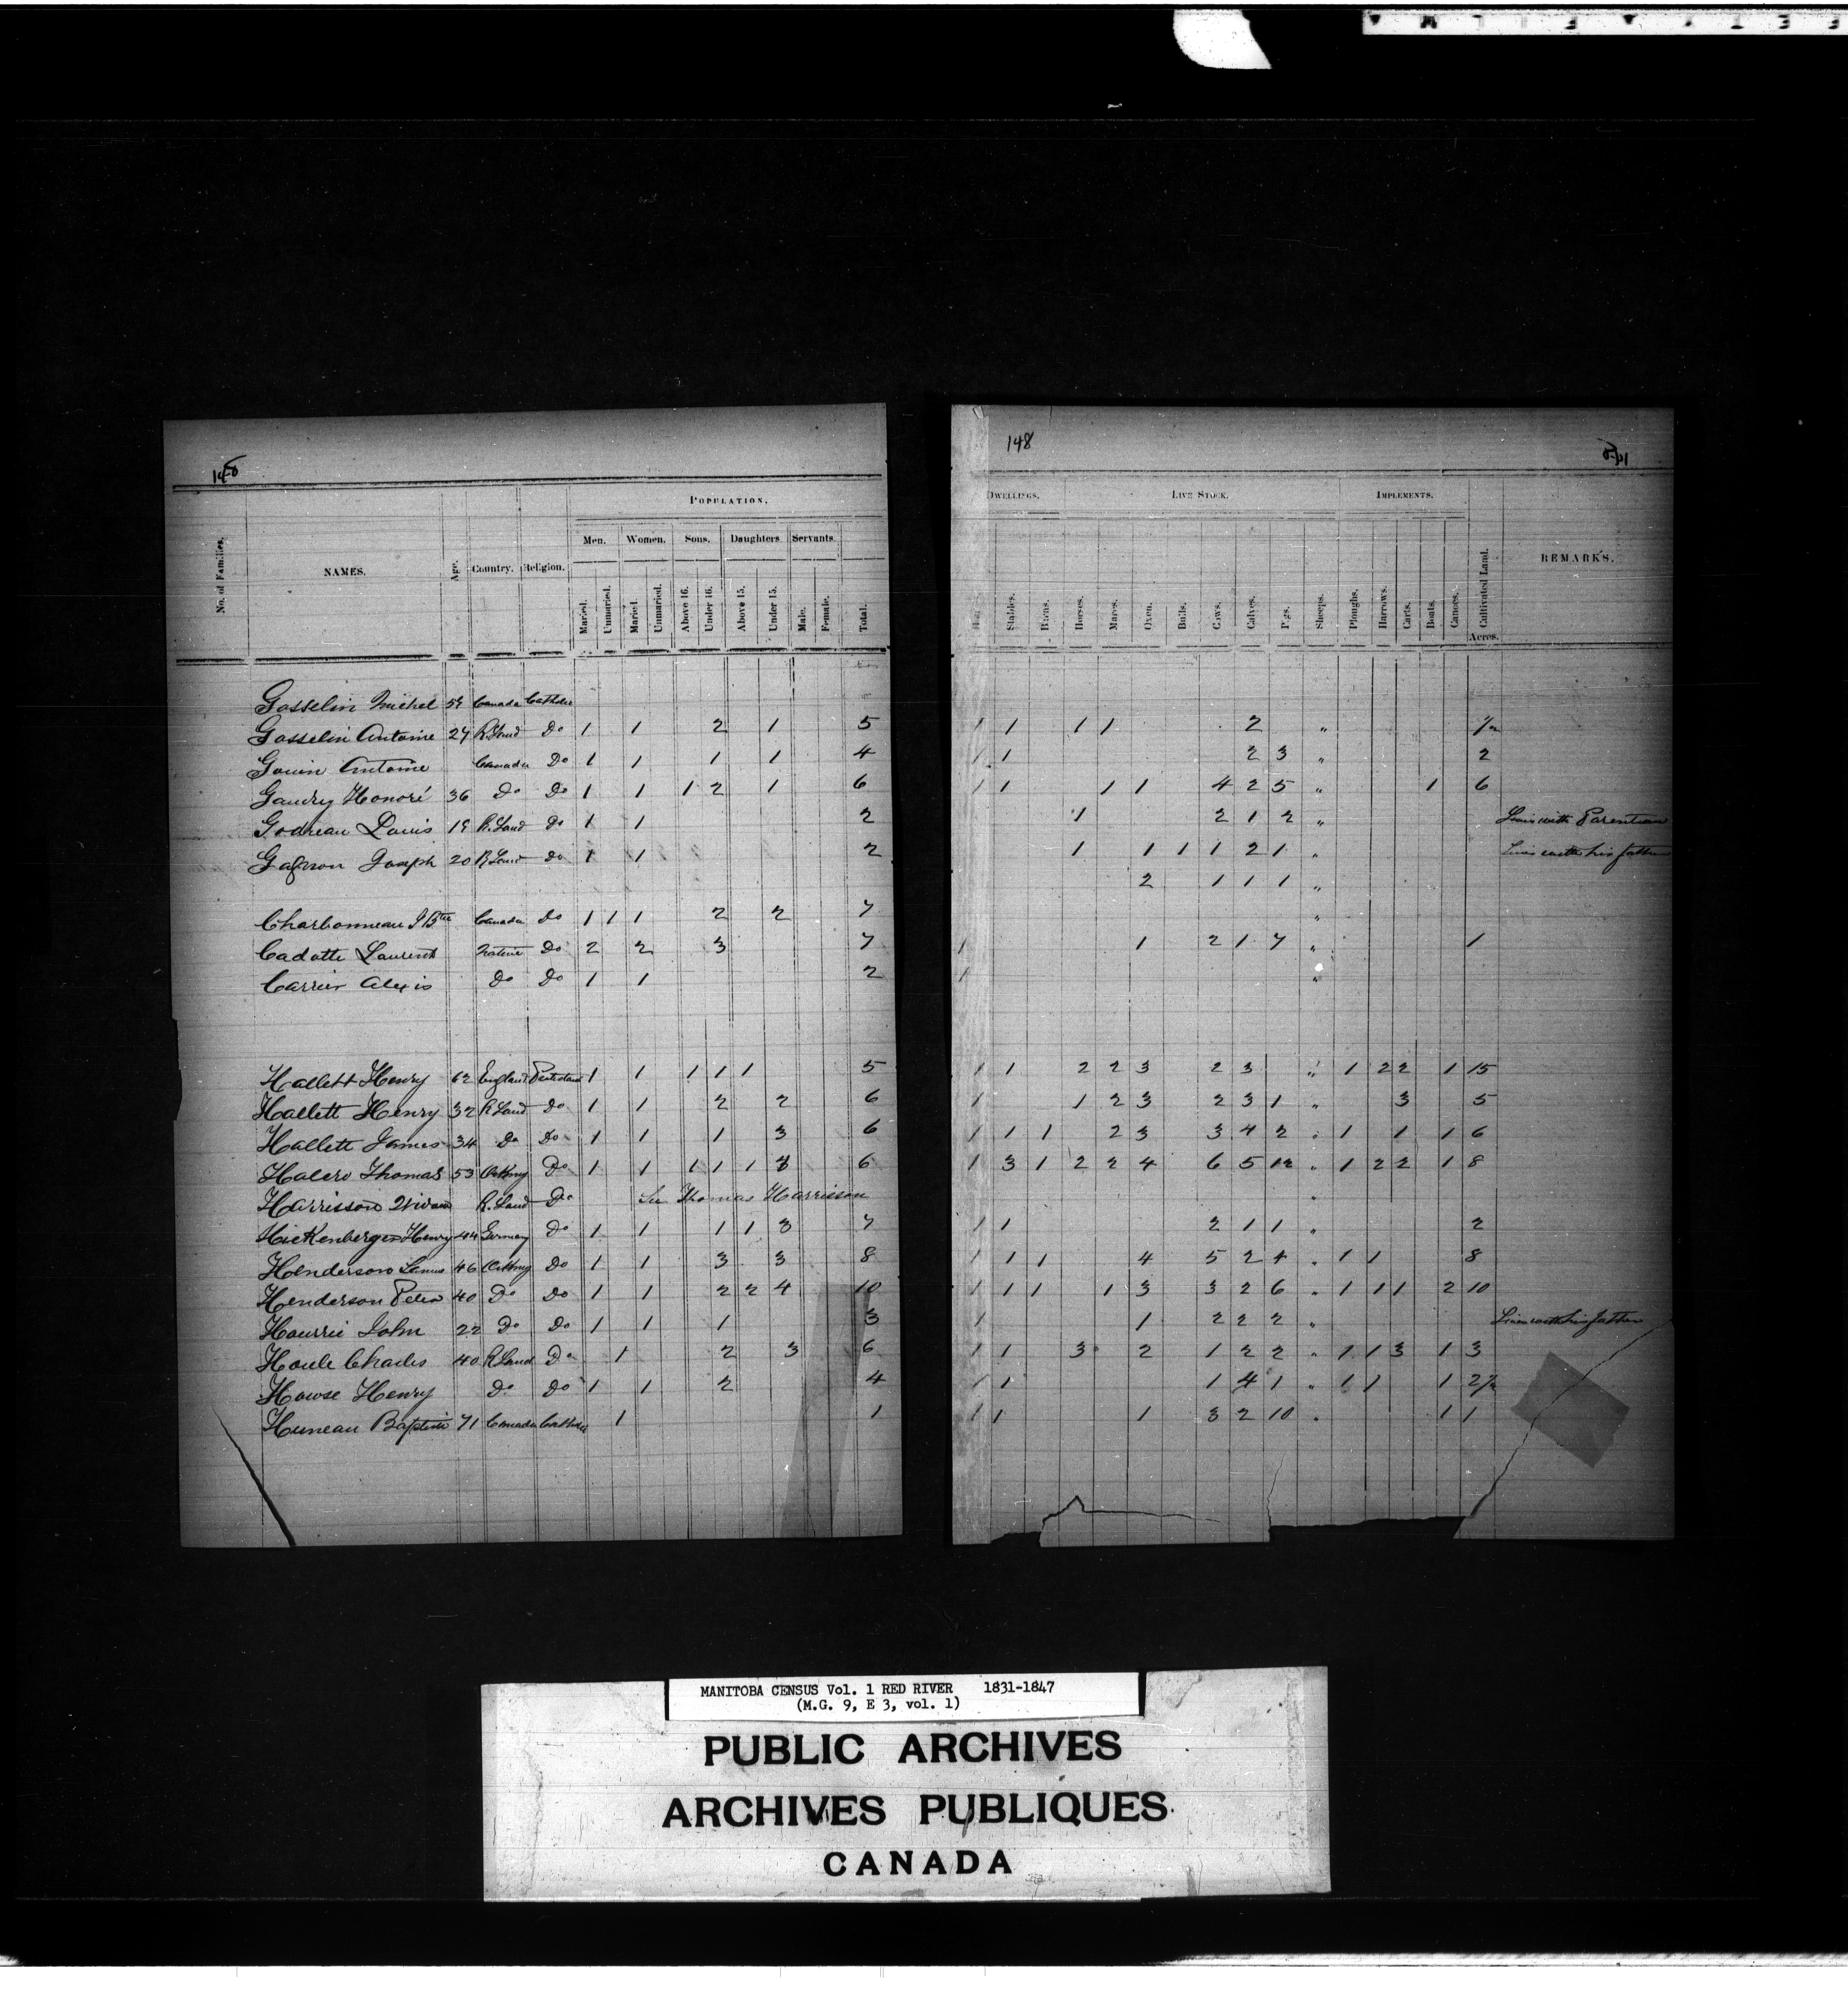 148
DWELLINGS. LIVE STOCK. IMPLEMENTS.
POPULATION.
Men. Women. Sons. Daughters Servants.
No. of Families. NAMES. Age. Country. Religion. Married. Unmaried. Maried. Unmaried. Above 16. Under 16. Above 15. Under 15. Male. Female. Total.
Stables. Barns. Horses. Mares. Oxen. Bulls. Cows. Calves. Pigs. Sheeps. Ploughs. Harrows. Carts. Boats. Canoes. Cultivated Land. Acres. REMARKS.
Gosselin Michel 59 Canada Catholic
Gosselin Antoine 27 R. Land Do 1 1 2 1 5 1 1 1 1 2 " ½
Gouin Antoine Canada Do 1 1 1 1 4 1 1 2 3 " 2
Gaudry Honoré 36 Do Do 1 1 1 2 1 6 1 1 1 1 4 2 5 " 1 6
Godreau Louis 19 R. Land Do 1 1 2 1 2 1 2 " Lives with Parenteau
Gagnon Joseph 20 R Land Do 1 1 2 1 1 1 1 2 1 " Lives with his father
2 1 1 1 "
Charbonneau J Bte Canada Do 1 1 1 2 2 7 "
Cadotte Laurent Native Do 2 2 3 7 1 1 2 1 7 " 1
Carrier Alexis Do Do 1 1 2 1 "
Hallett Henry 62 England Protestant 1 1 1 1 1 5 1 1 2 2 3 2 3 " 1 2 2 1 15
Hallett Henry 32 R Land Do 1 1 2 2 6 1 1 2 3 2 3 1 " 3 5
Hallett James 34 Do Do 1 1 1 3 6 1 1 1 2 3 3 4 2 " 1 1 1 6
Halcro Thomas 53 Orkney Do 1 1 1 1 1 6 1 3 1 2 2 4 6 5 12 " 1 2 2 1 8
Harrisson R. Land Do See Thomas Harrisson "
Hickenberger Henry 44 Germany Do 1 1 1 1 3 7 1 1 2 1 1 " 2
Henderson 46 Orkney Do 1 1 3 3 8 1 1 1 4 5 2 4 " 1 1 8
Henderson Peter 40 Do Do 1 1 2 2 4 10 1 1 1 1 3 3 2 6 " 1 1 1 2 10
Hourrie John 22 Do Do 1 1 1 3 1 1 2 2 2 " Lives with his father
Houle Charles 40 R Land Do 1 2 3 6 1 1 3 2 1 2 2 " 1 1 3 1 3
Howse Henry Do Do 1 1 2 4 1 1 1 4 1 " 1 1 1 2½
Huneau Baptiste 71 Canada Catholic 1 1 1 1 1 3 2 10 " 1 1
MANITOBA CENSUS Vol. 1 RED RIVER 1831-1847
(M.G. 9, E 3, vol. 1)
PUBLIC ARCHIVES
ARCHIVES PUBLIQUES
CANADA